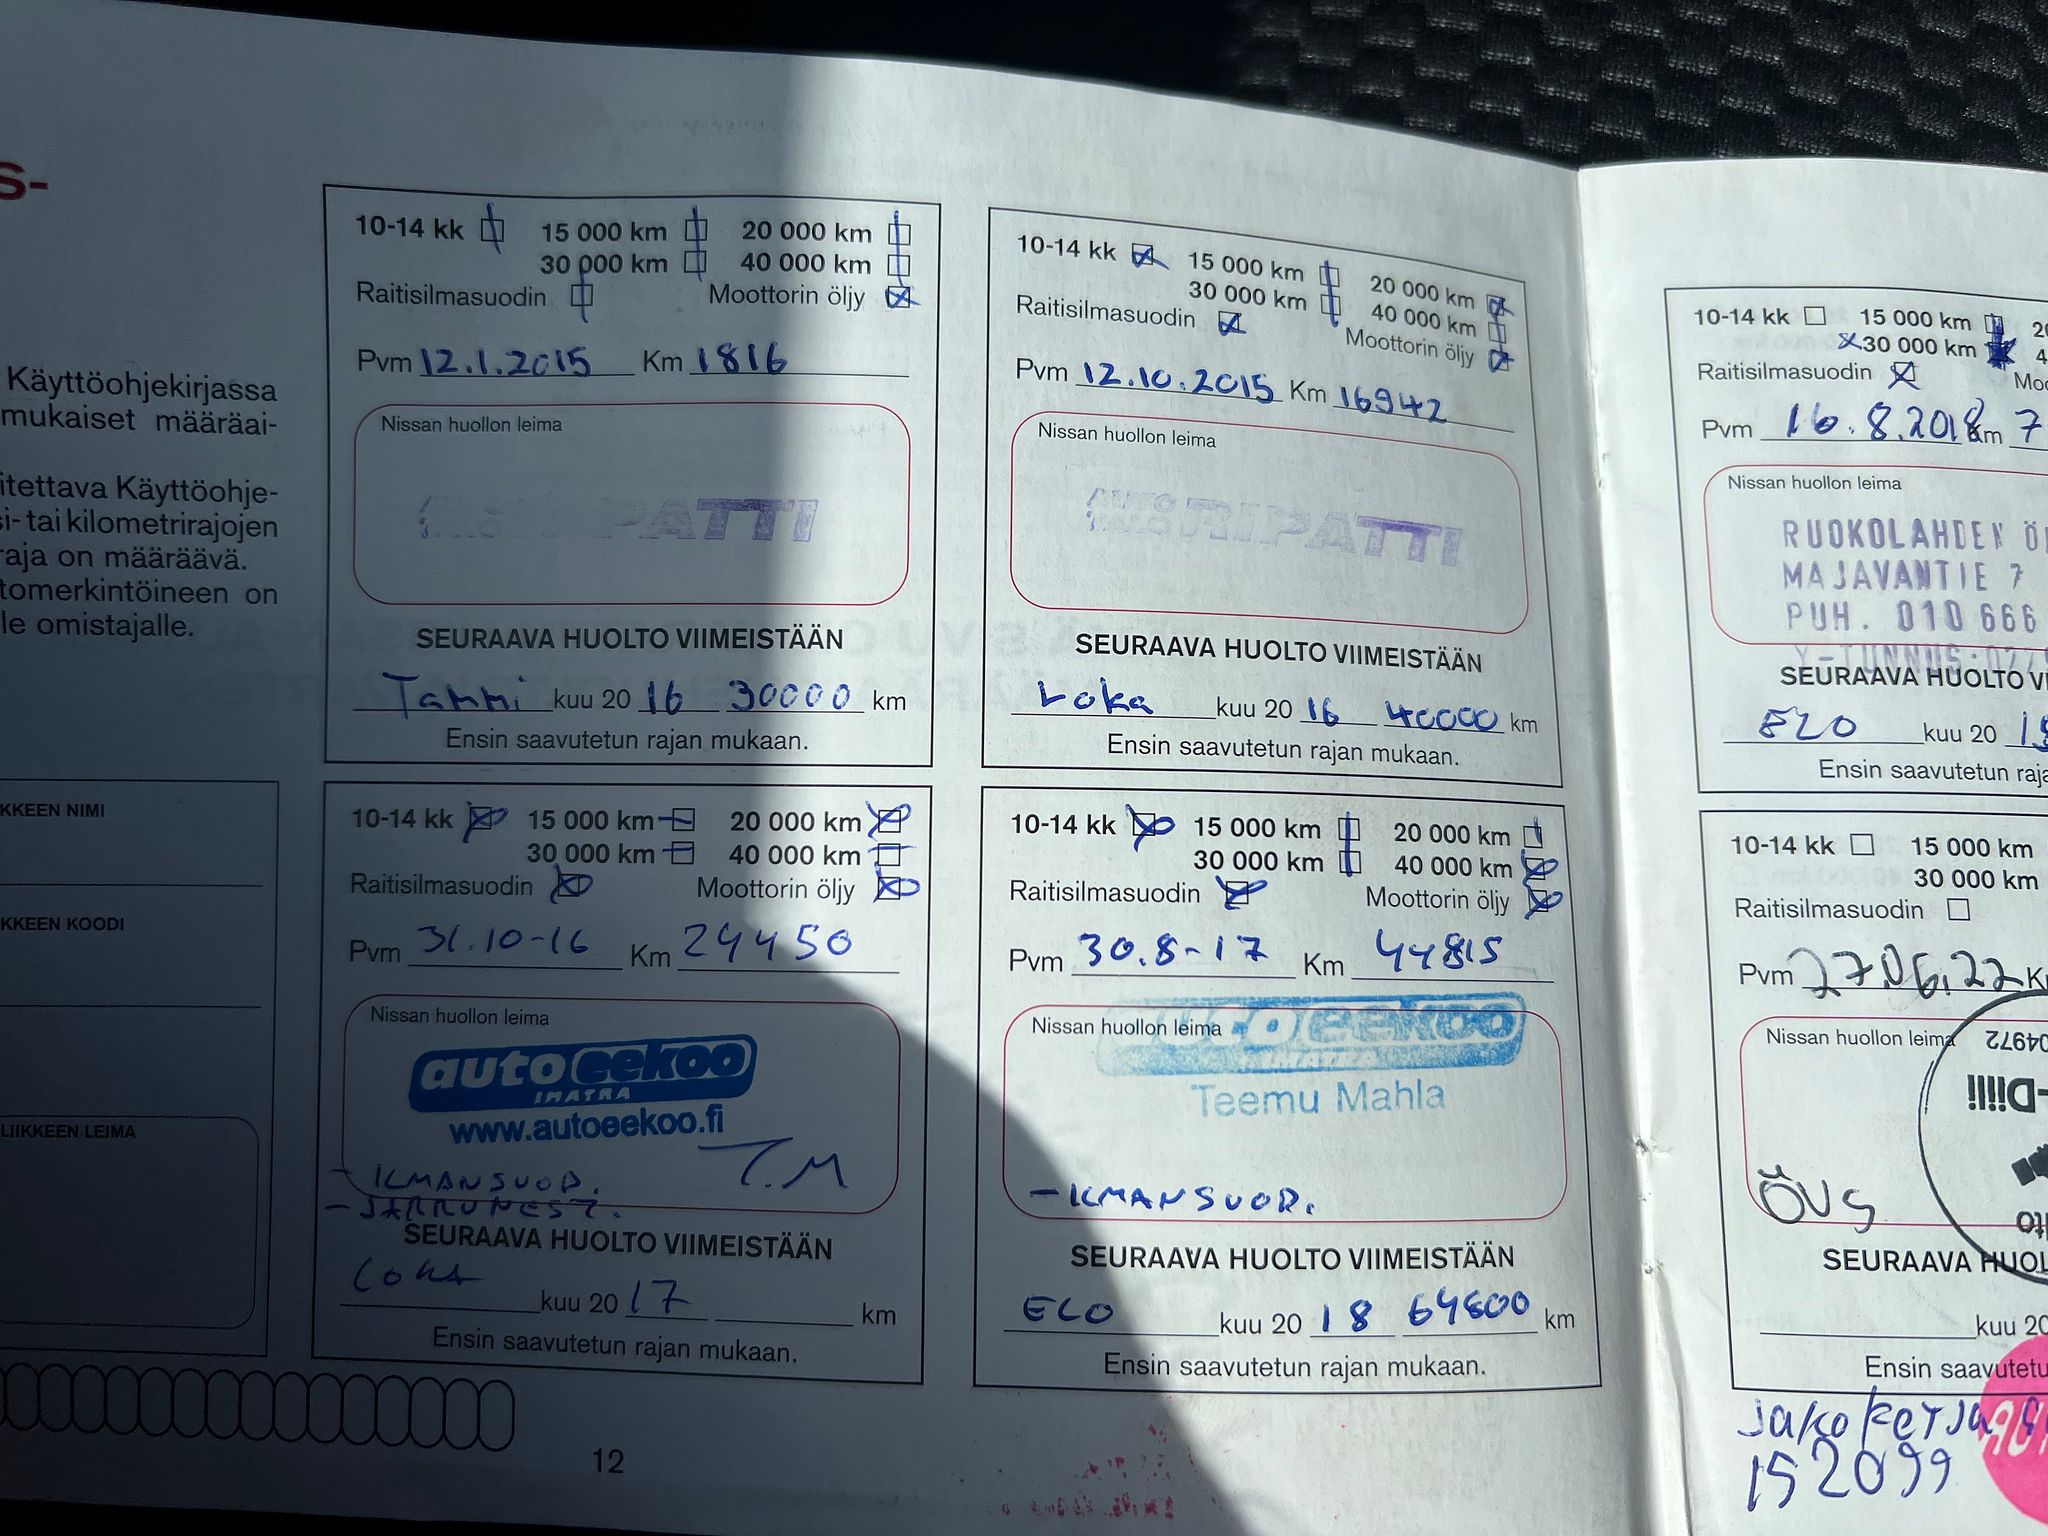 S-
Käyttöohjekirjassa
mukaiset määräai-
itettava Käyttöohje-
si- tai kilometrirajojen
raja on määräävä.
tomerkintöineen on
le omistajalle.
KKEEN NIMI
KKEEN KOODI
LIIKKEEN LEIMA
10-14 kk 15 000 km 20 000 km
30 000 km 40 000 km
Raitisilmasuodin Moottorin öljy
Pvm 12.1.2015 Km 1816
Nissan huollon leima
PATTI
SEURAAVA HUOLTO VIIMEISTÄÄN
Tammi kuu 20 16 30000 km
Ensin saavutetun rajan mukaan.
10-14 kk 15 000 km 20 000 km
30 000 km 40 000 km
Raitisilmasuodin Moottorin öljy
Pvm 12.10.2015 Km 16942
Nissan huollon leima
AUTO RIPATTI
SEURAAVA HUOLTO VIIMEISTÄÄN
Loka kuu 20 16 40000 km
Ensin saavutetun rajan mukaan.
10-14 kk 15 000 km 20 000 km
30 000 km 40 000 km
Raitisilmasuodin Moottorin öljy
Pvm 31.10-16 Km 24450
Nissan huollon leima
autoeekoo
IMATRA
www.autoeekoo.fi
T.M
- ILMANSUOD.
- JARRUNEST.
SEURAAVA HUOLTO VIIMEISTÄÄN
LOKA kuu 20 17 km
Ensin saavutetun rajan mukaan.
10-14 kk 15 000 km 20 000 km
30 000 km 40 000 km
Raitisilmasuodin Moottorin öljy
Pvm 30.8-17 Km 44815
Nissan huollon leima
autoeekoo
IMATRA
Teemu Mahla
- ILMANSUOD.
SEURAAVA HUOLTO VIIMEISTÄÄN
ELO kuu 20 18 64800 km
Ensin saavutetun rajan mukaan.
12
10-14 kk 15 000 km 20
x 30 000 km 4
Raitisilmasuodin Moo
Pvm 16.8.2018 Km 7
Nissan huollon leima
RUOKOLAHDEN Ö
MAJAVANTIE 7
PUH. 010 666
Y-TUNNUS:
SEURAAVA HUOLTO VI
ELO kuu 20
Ensin saavutetun raja
10-14 kk 15 000 km
30 000 km
Raitisilmasuodin
Pvm 27.06.22 K
Nissan huollon leima
04972
-Diilli
ÖVS
lto
SEURAAVA HUOL
kuu 20
Ensin saavutetu
Jakoketja
152099